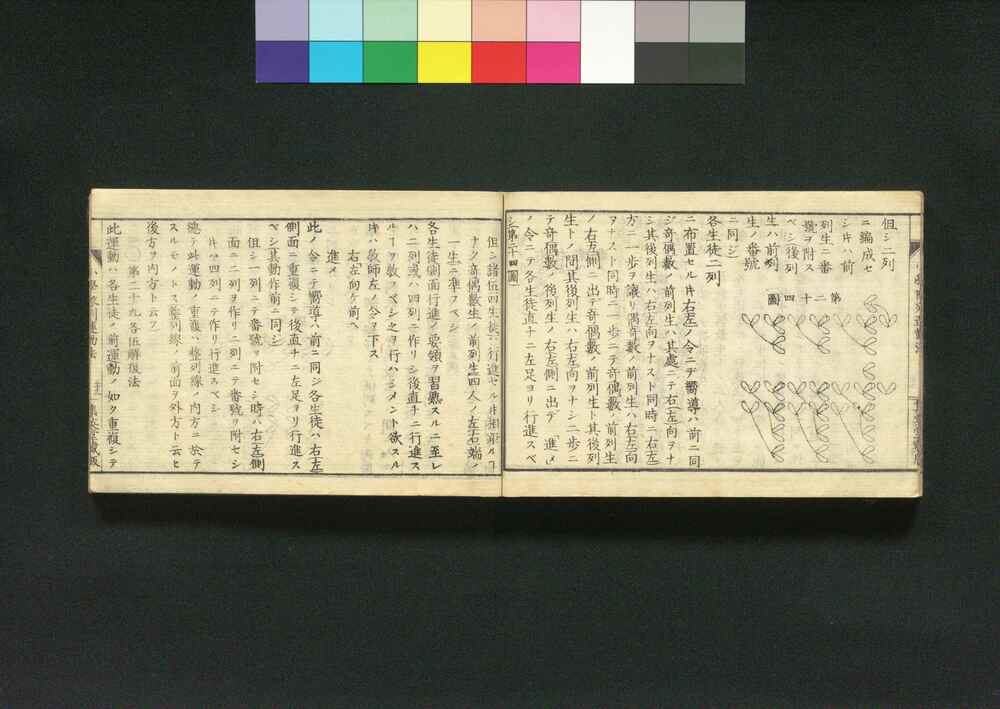 但シ二列
ニ編成セ
シ𪜈ハ前
列生ニ番
號ヲ附ス
ベシ後列
生ハ前列
生ノ番號
ニ同ジ
第二十四圖
各生徒二列
ニ布置セル𪜈右左ノ令ニテ嚮導ハ前ニ同
ジ奇偶數ノ前列生ハ其處ニテ右左向ヲナ
シ其後列生ハ右左向ヲナスト同時ニ右左
方ニ一歩ヲ讓リ偶奇數ノ前列生ハ右左向
ヲナスト同時ニ一歩ニテ奇偶數ノ前列生
ノ右左側ニ出デ奇偶數ノ前列生ト其後列
生トノ間其後列生ハ右左向ヲナシ二歩ニ
テ奇偶數ノ後列生ノ右左側ニ出デ 進メ
ノ令ニテ各生徒直チニ左足ヨリ行進スベ
シ第二十四圖
但シ諸伍四生徒ハ行進セル𪜈相並ルヿ
ナク奇偶數生ノ前列生四人ノ左右端ノ
一生ニ準フベシ
各生徒側面行進ノ要領ヲ習熟スルニ至レ
ハ二列或ハ四列ニ作リシ後直チニ行進ス
ルヿヲ敎フベシ之ヲ行ハシメント欲スル
𪜈ハ敎師左ノ令ヲ下ス
右左向ケ前ヘ
進メ
此ノ令ニテ嚮導ハ前ニ同シ各生徒ハ右左
側面ニ重複シテ後直チニ左足ヨリ行進ス
ベシ其動作前ニ同シ
但シ一列ニテ番號ヲ附セシ時ハ右左側
面ニ二列ヲ作リ二列ニテ番號ヲ附セシ
𪜈ハ四列ニテ作リ行進スベシ
總テ此運動ノ重複ハ整列線ノ内方ニ於テ
スルモノトス整列線ノ前面ヲ外方ト云ヒ
後方ヲ内方ト云フ
○第二十九各伍解複法
此運動ハ各生徒ノ前運動ノ如ク重複シテ